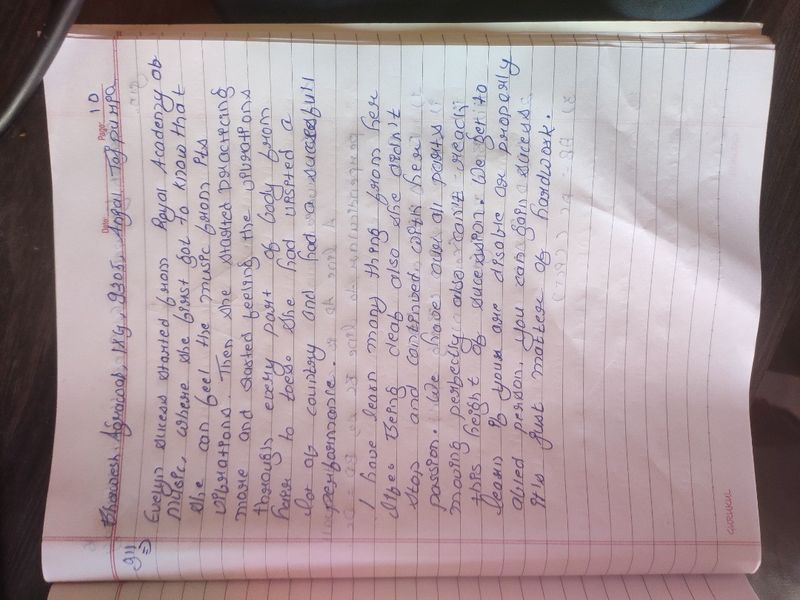 Date: Page: 10
Q11
=) Evelyn sucess started from Royal Academy of
Music, where she first got to know that
she can feel the music from its
vibrations. Then she started practicing
more and sasted feeling the vibrations
through every part of body from
hair to toes. She had visited a
lot of country and had a successfull
performance.
I have learn many thing from her
life. Being deaf also she didnit
stop and continued with her
passion. We have our all parts
moving perfectly also can't reach
this height of succession. We get to
learn if your are disable or properly
abled person. You can gain success
it is just matter of hardwork.